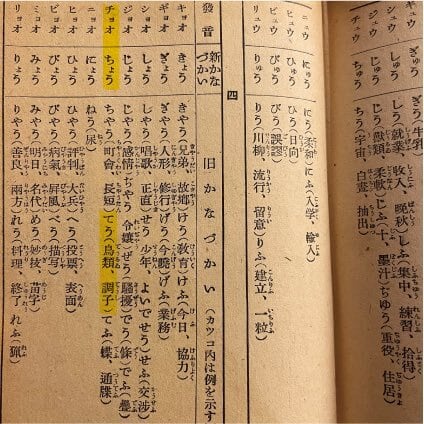 ぎう(牛乳
シュウ しゅう しう(就業、収入、晩秋)しふ(集中、練習、拾得)
ジュウ じゅう じう(獣類、柔軟)じふ(十、墨汁)ぢゆう(重役、住居)
チュウ ちゅう ちう(宇宙、白晝、抽出)
ニュウ にゅう にう(柔和)にふ(入学、輸入)
ヒュウ ひゅう ひう(日向)
ビュウ びゅう びう(誤謬)
リュウ りゅう りう(川柳、流行、留意)りふ(建立、一粒)
四
發音 新かなづかい 旧かなづかい(カッコ内は例を示す
キョオ きょう きやう(兄弟、故郷)けう(教育)けふ(今日、協力)
ギョオ ぎょう ぎやう(人形、修行)げう(今暁)げふ(業務)
ショオ しょう しやう(唱歌、正直)せう(少年、よいでせう)せふ(交渉)
ジョオ じょう じやう(感情)ぢやう(令嬢)ぜう(騒擾)でう(條)でふ(疊)
チョオ ちょう ちやう(町會、長短)てう(鳥類、調子)てふ(蝶、通牒)
ニョオ にょう ねう(尿)
ヒョオ ひょう ひやう(評判)へう(投票、表面)
ビョオ びょう びやう(病氣、屏風)べう(描写)
ミョオ みょう みやう(明日、名代)めう(妙技、苗字)
リョオ りょう りやう(善良、兩方)れう(料理、終了)れふ(猟)